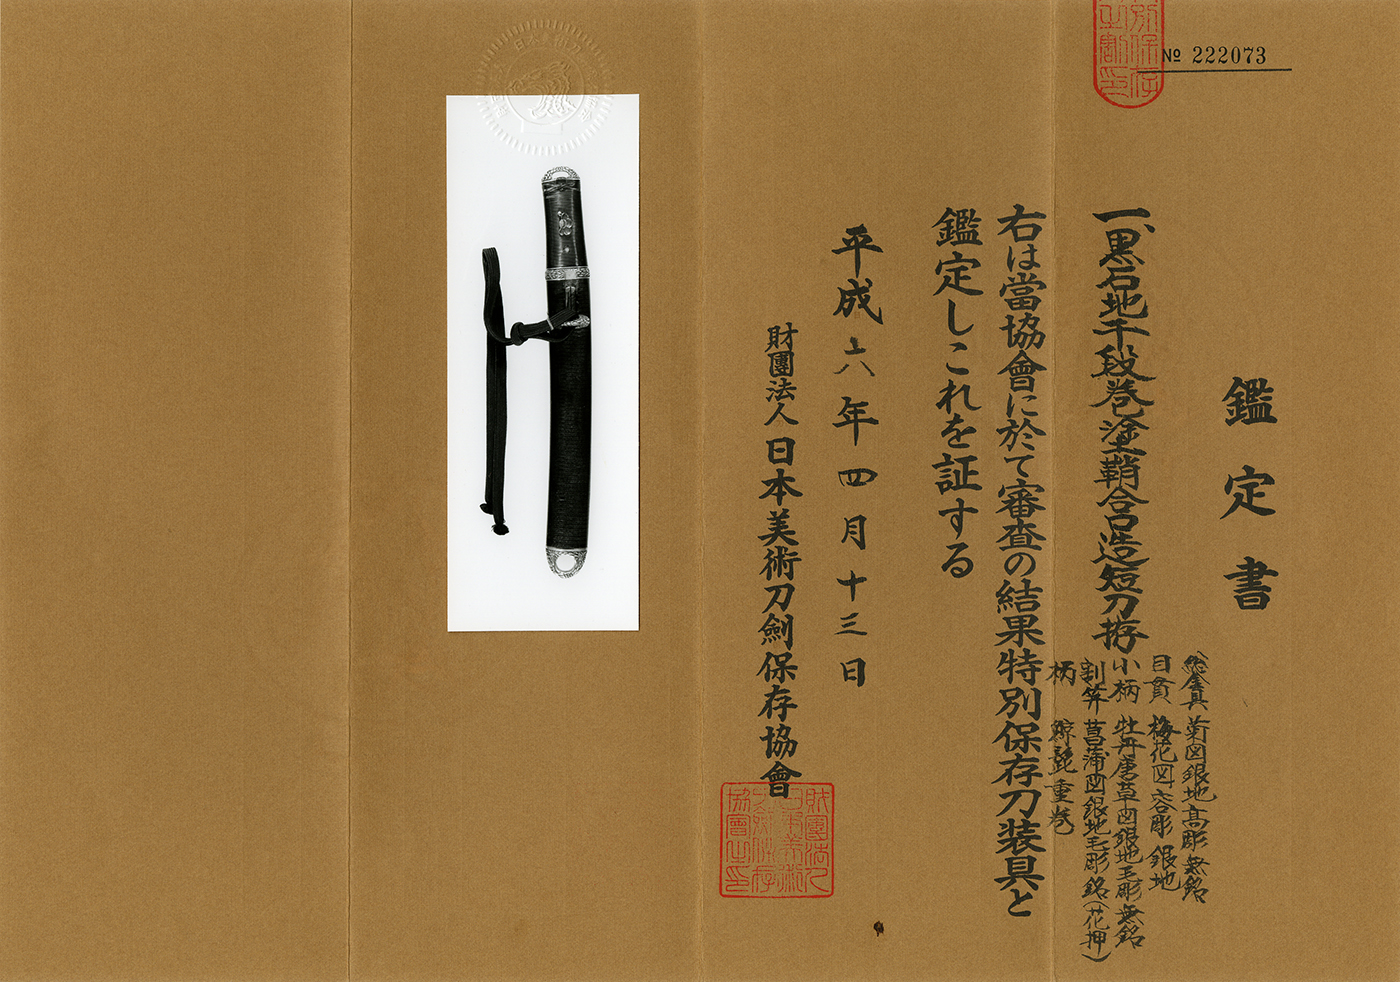 № 222073
鑑定書
一、黒石地千段巻塗鞘合口造短刀拵
総金具 菊図銀地高彫無銘
目貫 梅花図容彫銀地
小柄 牡丹唐草図銀地毛彫無銘
割笄 菖蒲図銀地毛彫銘(花押)
柄 鯨髭重巻
右は當協會に於て審査の結果特別保存刀装具と
鑑定しこれを証する
平成六年四月十三日
財團法人日本美術刀劍保存協會